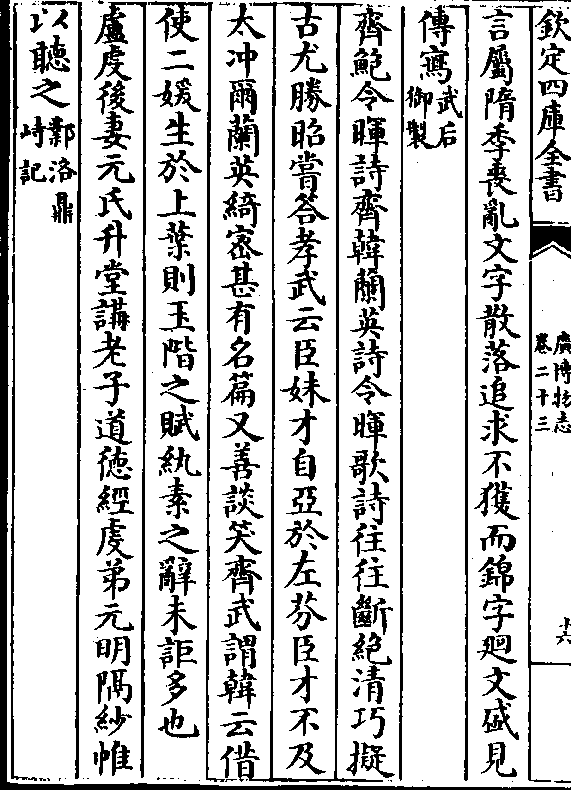 欽定四庫全書
廣博物志
卷二十三
十六
言屬隋季喪亂文字散落追求不獲而錦字廻文盛見
傳寫武后御製
齊鮑令暉詩齊韓蘭英詩令暉歌詩往往斷絕清巧擬
古尤勝昭嘗答孝武云臣妹才自亞於左芬臣才不及
太冲爾蘭英綺密甚有名篇又善談笑齊武謂韓云借
使二媛生於上葉則玉階之賦紈素之辭未詎多也
盧虔後妻元氏升堂講老子道德經虔弟元明隔紗帷
以聽之鄴洛鼎峙記